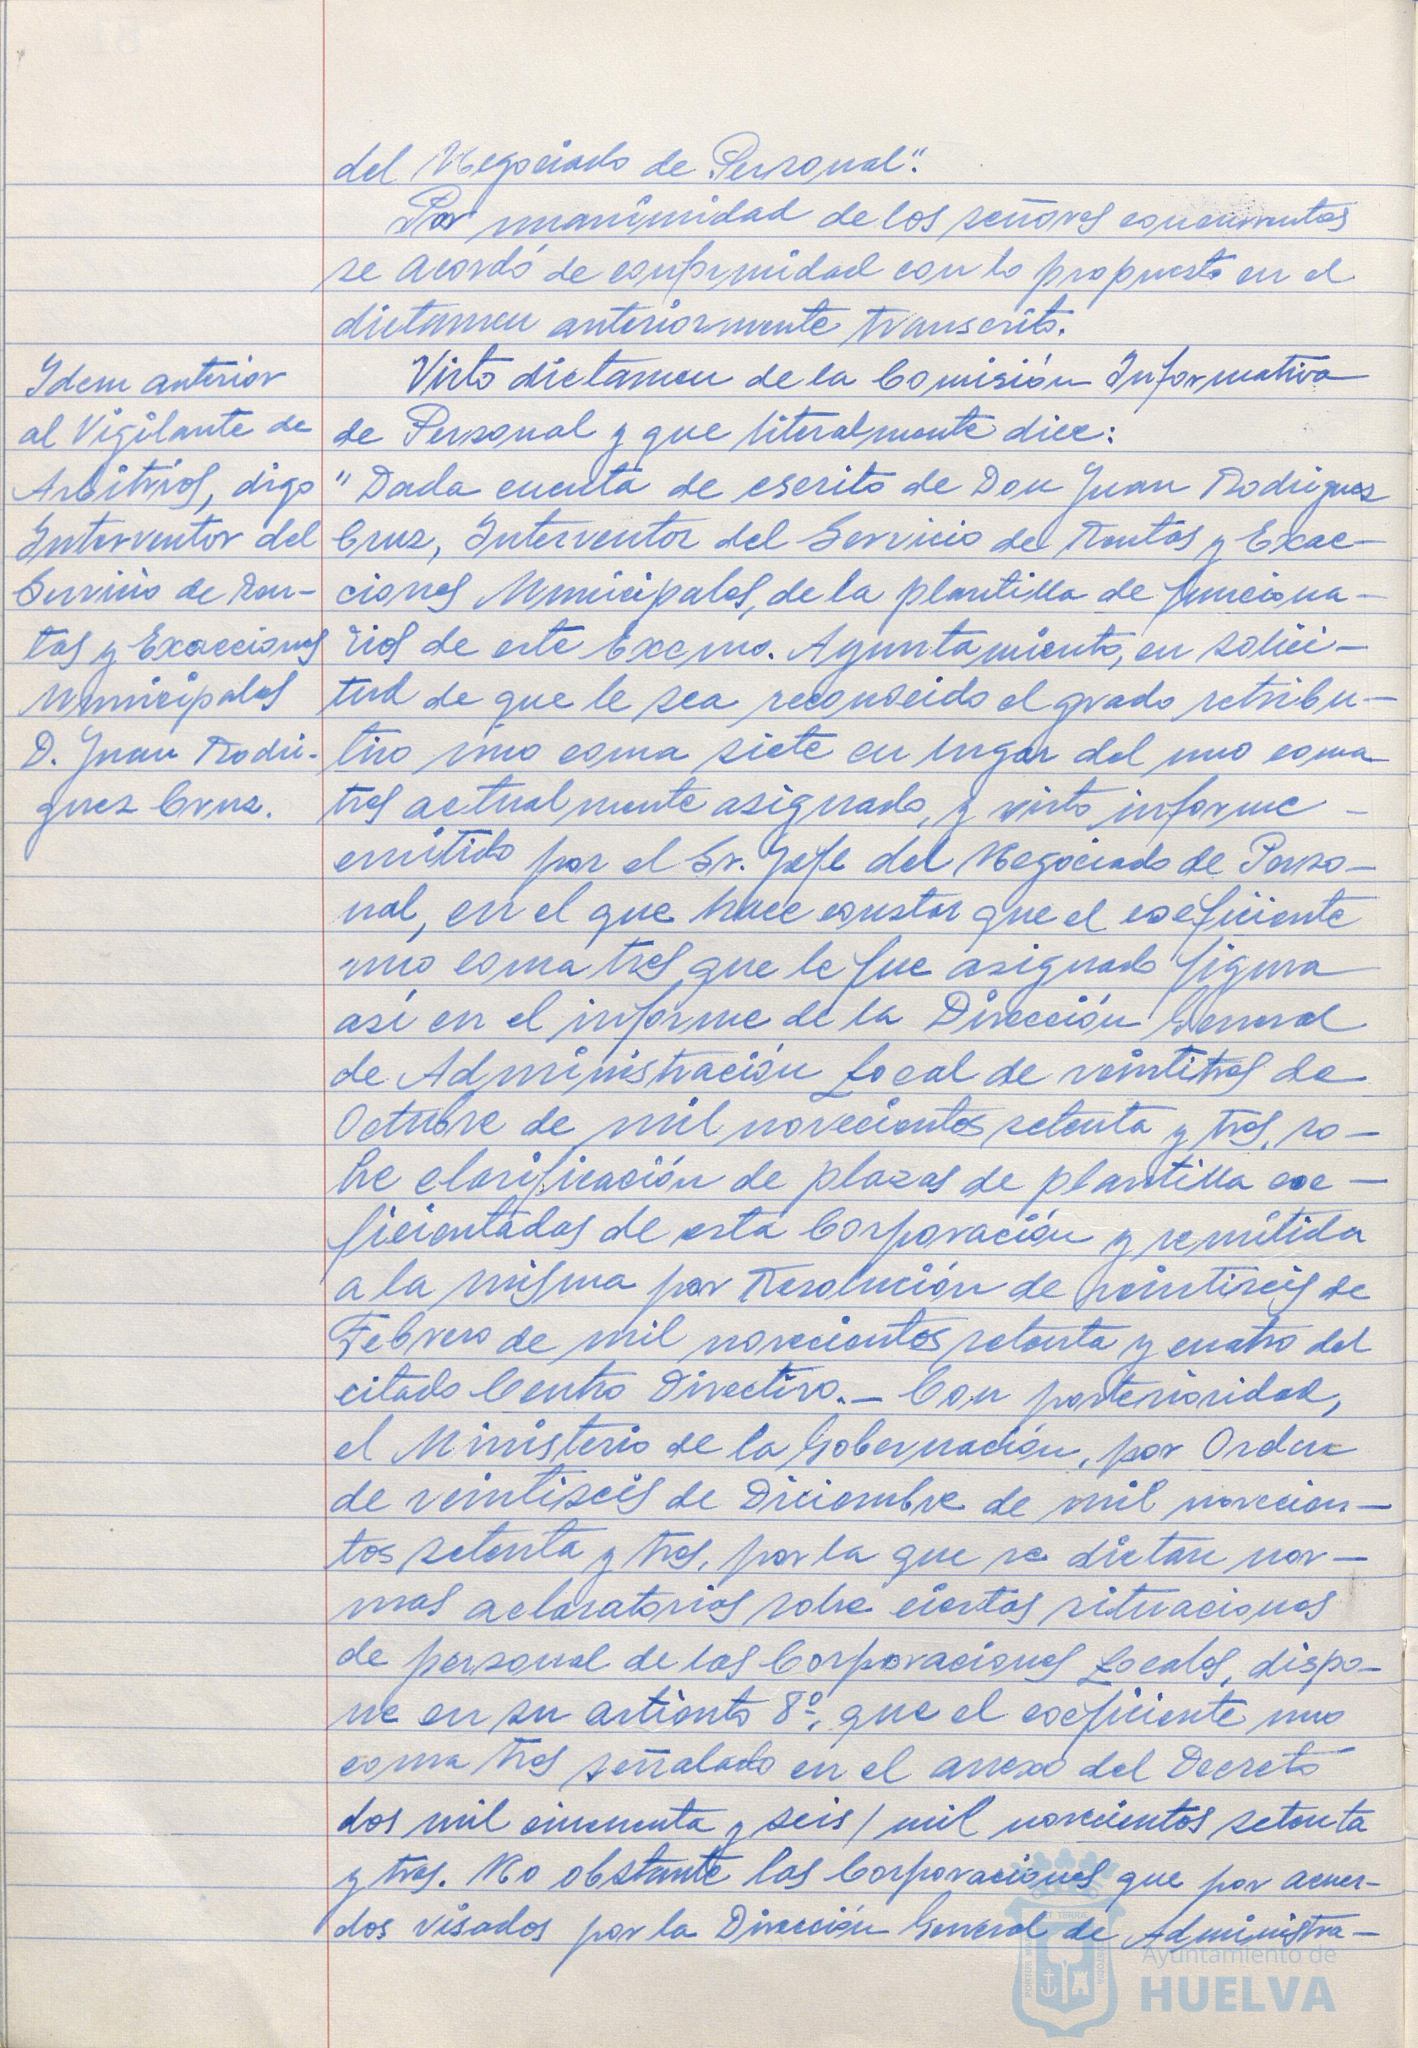 del Negociado de Personal".
Por unanimidad de los señores concurrentes
se acordó de conformidad con lo propuesto en el
dictamen anteriormente transcrito.
Idem anterior
al Vigilante de
Arbitrios, digo
Interventor del
Servicio de Ren-
tas y Exacciones
Municipales
D. Juan Rodri-
guez Cruz.
Visto dictamen de la Comisión Informativa
de Personal y que literalmente dice:
"Dada cuenta de escrito de Don Juan Rodriguez
Cruz, Interventor del Servicio de Rentas y Exac-
ciones Municipales, de la plantilla de funciona-
rios de este Excmo. Ayuntamiento, en solici-
tud de que le sea reconocido el grado retribu-
tivo uno coma siete en lugar del uno coma
tres actualmente asignado, y visto informe -
emitido por el Sr. Jefe del Negociado de Perso-
nal, en el que hace constar que el coeficiente
uno coma tres que le fue asignado figura
así en el informe de la Dirección General
de Administración Local de veintitres de
Octubre de mil novecientos setenta y tres, so-
bre clarificación de plazas de plantilla coe-
ficientadas de esta Corporación y remitida
a la misma por Resolución de veintiseis de
Febrero de mil novecientos setenta y cuatro del
citado Centro Directivo.- Con posterioridad,
el Ministerio de la Gobernación, por Orden
de veintiseis de Diciembre de mil novecien-
tos setenta y tres, por la que se dictan nor-
mas aclaratorias sobre ciertas situaciones
de personal de las Corporaciones Locales, dispo-
ne en su artículo 8º, que el coeficiente uno
coma tres señalado en el anexo del Decreto
dos mil cincuenta y seis/ mil novecientos setenta
y tres. No obstante las Corporaciones que por acuer-
dos visados por la Dirección General de Administra-
Ayuntamiento de
HUELVA